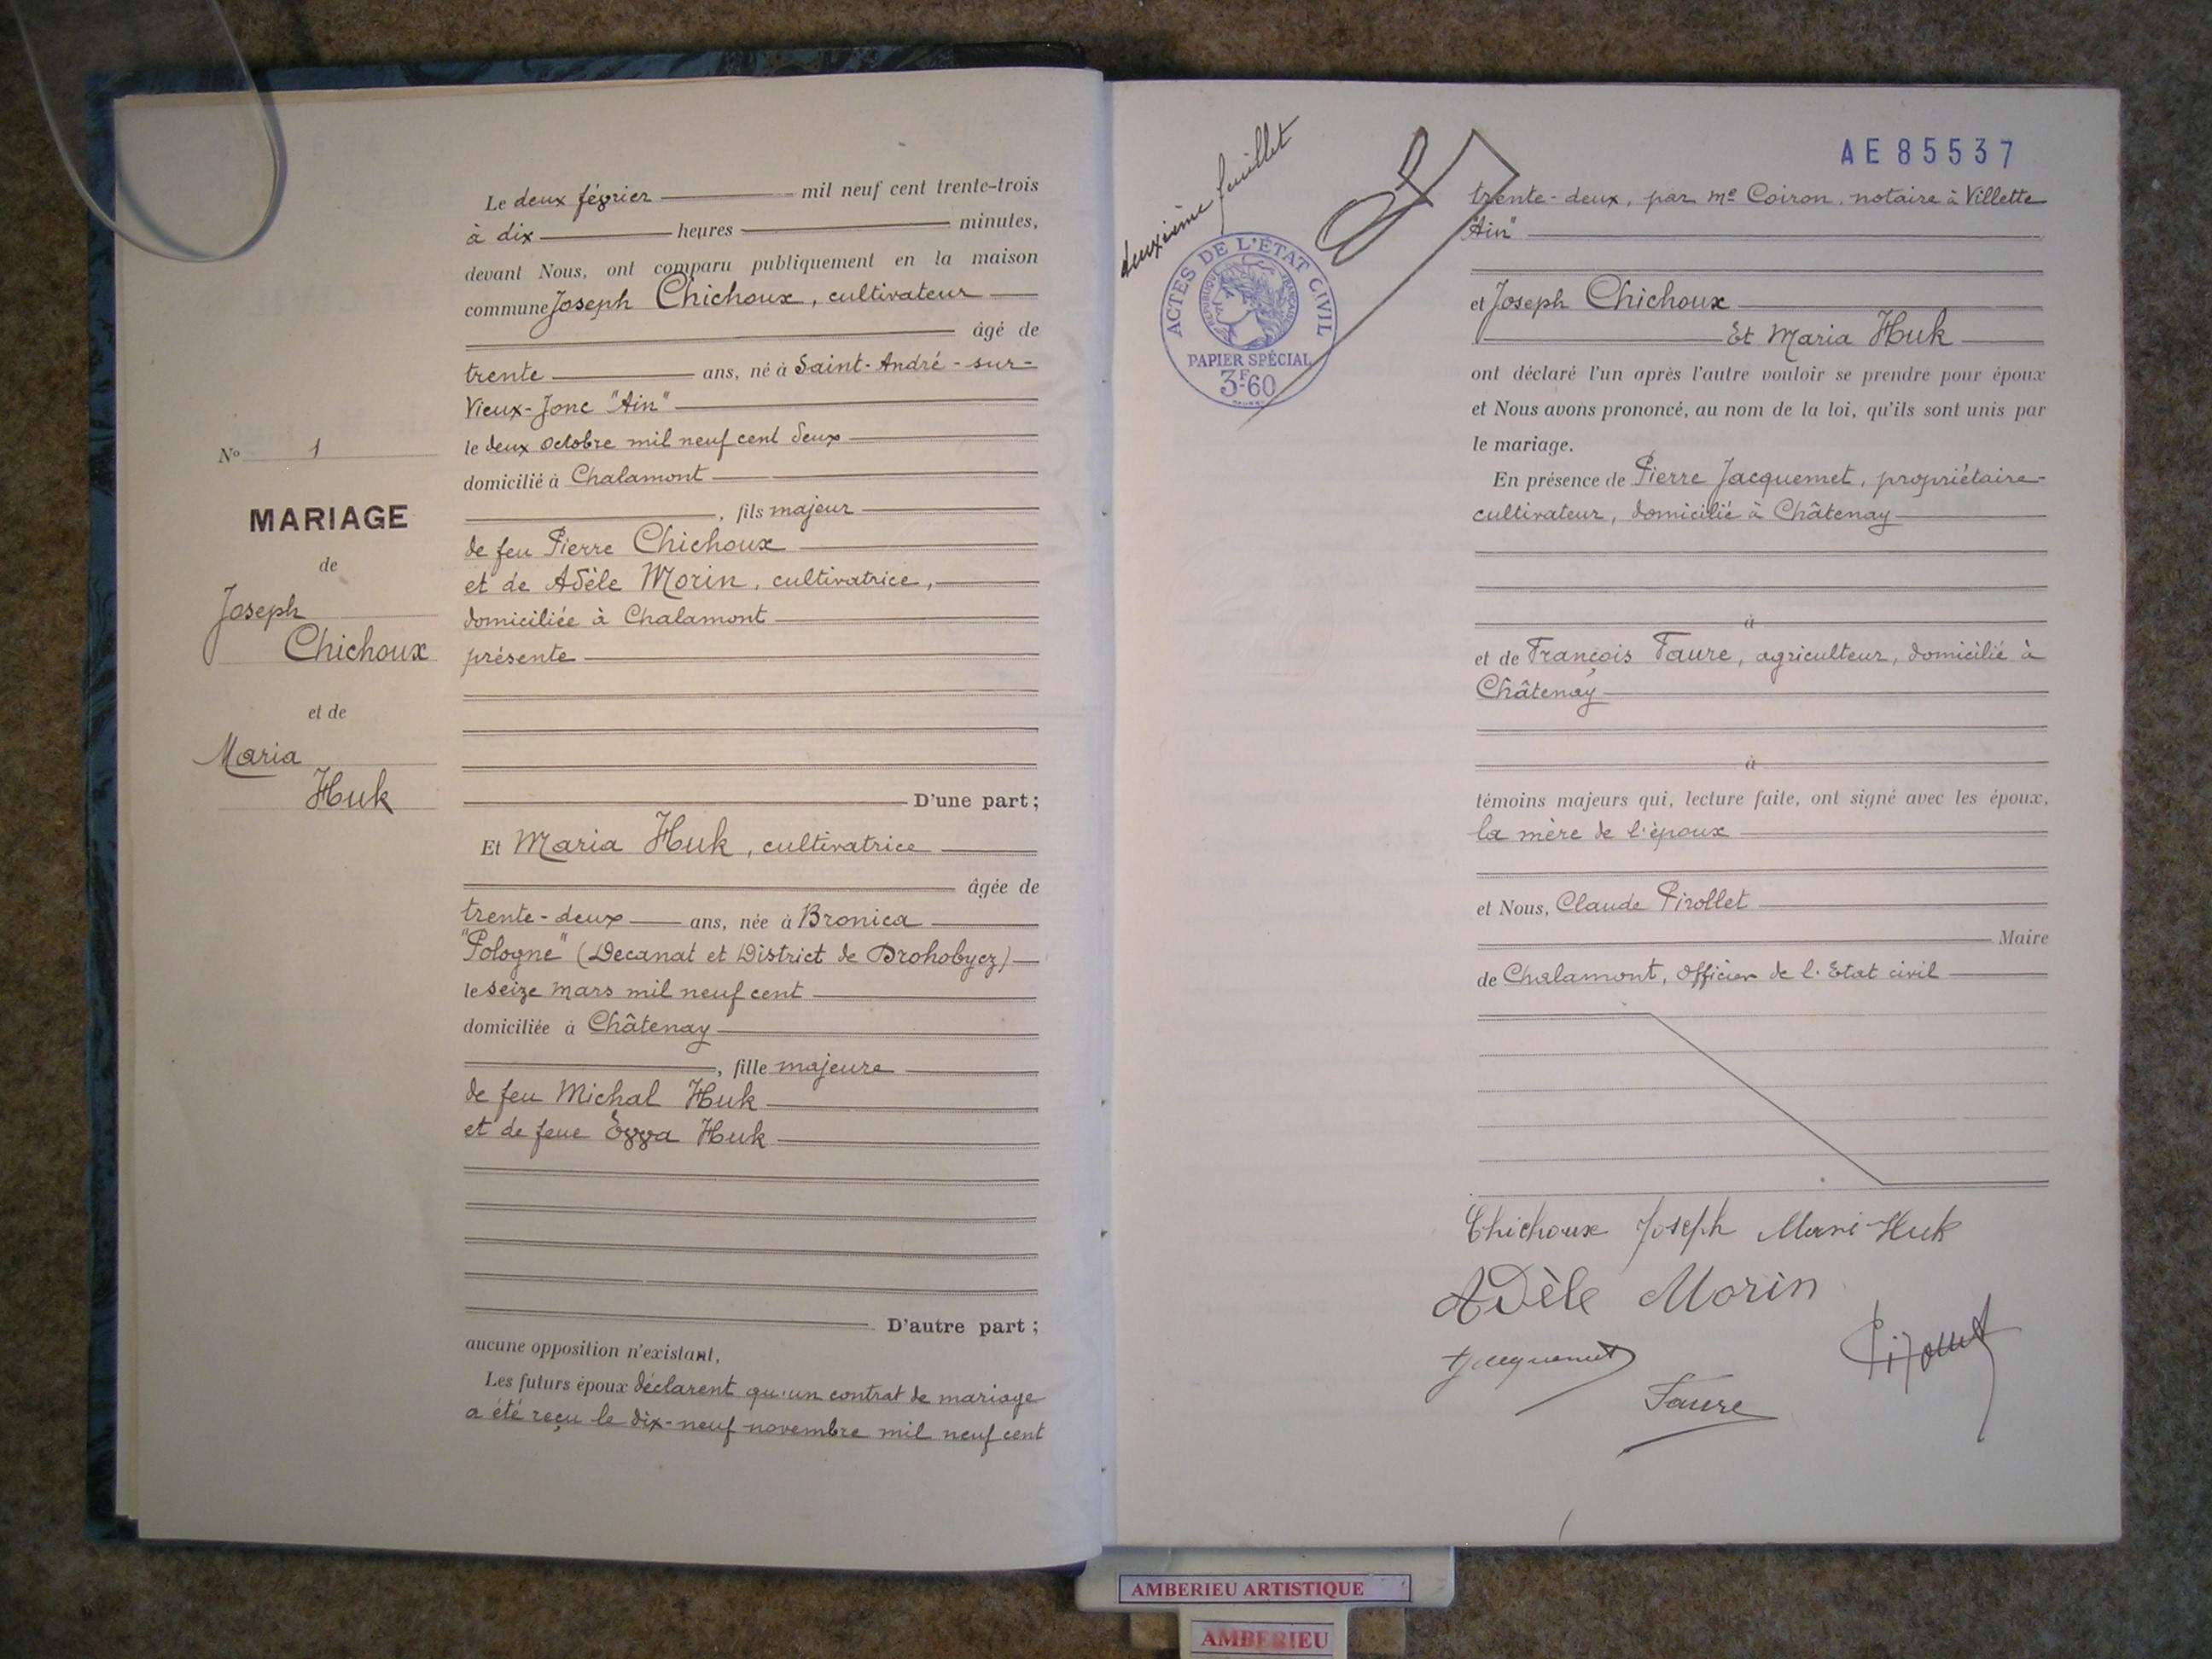 Le deux février mil neuf cent trente-trois
à dix heures minutes,
devant Nous, ont comparu publiquement en la maison
commune Joseph Chichoux, cultivateur
âgé de
trente ans, né à Saint-André-sur-
Vieux-Jonc "Ain"
le deux Octobre mil neuf cent deux
domicilié à Chalamont
, fils majeur
de feu Pierre Chichoux
et de Adèle Morin, cultivatrice,
domiciliée à Chalamont
présente
D'une part ;
Et Maria Huk, cultivatrice
âgée de
trente-deux ans, née à Bronica
"Pologne" (Decanat et District de Drohobycz)
le seize mars mil neuf cent
domiciliée à Châtenay
, fille majeure
de feu Michal Huk
et de feue Huk
D'autre part ;
aucune opposition n'existant,
Les futurs époux déclarent qu'un contrat de mariage
a été reçu le dix-neuf novembre mil neuf cent
No 1
MARIAGE
de
Joseph
Chichoux
et de
Maria
Huk
deuxième feuillet
ACTES DE L'ÉTAT CIVIL
RÉPUBLIQUE FRANÇAISE
PAPIER SPÉCIAL
3F60
AE 85537
trente-deux, par Me Coiron, notaire à Villette
"Ain"
et Joseph Chichoux
Et Maria Huk
ont déclaré l'un après l'autre vouloir se prendre pour époux
et Nous avons prononcé, au nom de la loi, qu'ils sont unis par
le mariage.
En présence de Pierre Jacquemet, propriétaire-
cultivateur, domicilié à Châtenay
à
et de François Faure, agriculteur, domicilié à
Châtenay
à
témoins majeurs qui, lecture faite, ont signé avec les époux,
la mère de l'époux
et Nous, Claude Pirollet
Maire
de Chalamont, Officier de l'Etat civil
Chichoux Joseph Huk
Adèle Morin
Jacquemet
Faure
AMBERIEU ARTISTIQUE
AMBERIEU